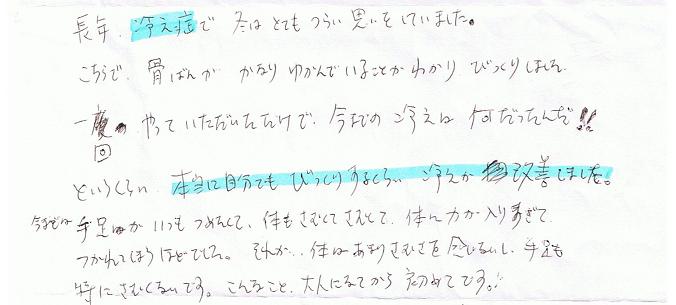 長年、冷え症で 冬は とても つらい 思いを していました。
こちらで、骨ばんが かなり ゆがんでいることがわかり びっくりしました
一回 やって いただいただけで、今までの 冷えは 何だったんだ!!
というくらい、本当に自分でも びっくりするくらい 冷えが 改善しました。
今までは 手足が いつも つめたくて、体もさむくてさむくて、体に力が入りすぎて
つかれてしまうほどでした。それが… 体はあまりさむさを感じないし、手足も
特にさむくないです。こんなこと、大人になってから 初めてです!!